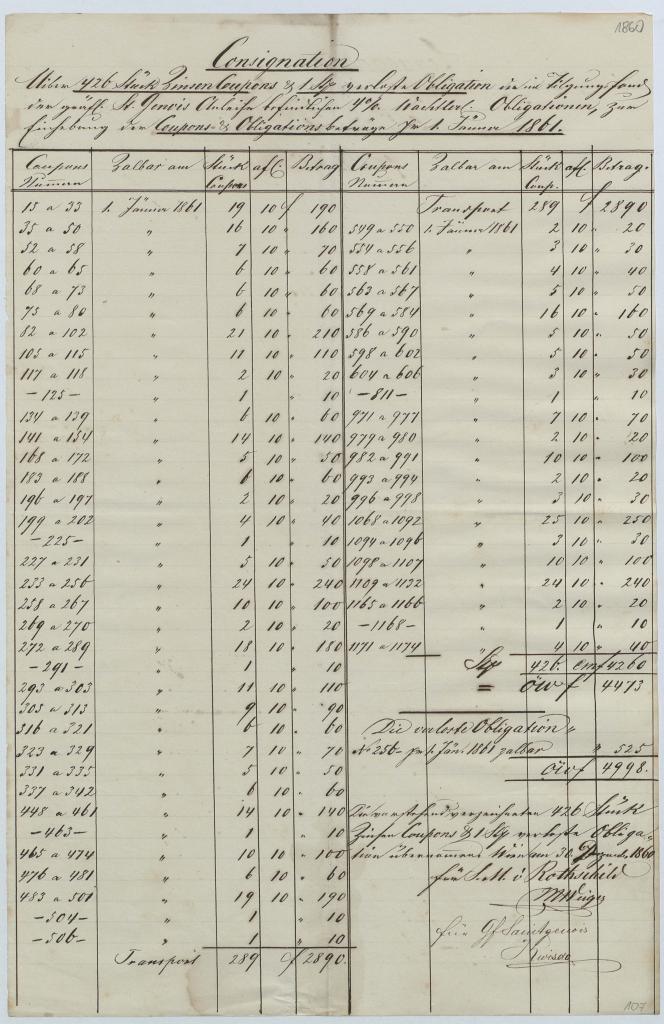 1860
Consignation
Uiber 426 Stück Zinsen Coupons & 1 Stp verloste Obligation die im Tilgungsfond
der gräfl. St. Genois Anleihe befindlichen 4% Obligationen, zur
Einhebung der Coupons- & Obligationsbeträge pr 1. Jänner 1861.
Coupons Numern Zalbar am Stück Coupons af. Betrag Coupons Numern Zalbar am Stück Coup. af. Betrag
15 a 33 1. Jänner 1861 19 10 f 190 Transport 289 f 2890
35 a 50 " 16 10 " 160 549 a 550 1. Jänner 1861 2 10 " 20
52 a 58 " 7 10 " 70 554 a 556 " 3 10 " 30
60 a 65 " 6 10 " 60 558 a 561 " 4 10 " 40
68 a 73 " 6 10 " 60 563 a 567 " 5 10 " 50
75 a 80 " 6 10 " 60 569 a 584 " 16 10 " 160
82 a 102 " 21 10 " 210 586 a 590 " 5 10 " 50
105 a 115 " 11 10 " 110 598 a 602 " 5 10 " 50
117 a 118 " 2 10 " 20 604 a 606 " 3 10 " 30
- 125 - " 1 " 10 - 811 - " 1 " 10
134 a 139 " 6 10 " 60 971 a 977 " 7 10 " 70
141 a 154 " 14 10 " 140 979 a 980 " 2 10 " 20
168 a 172 " 5 10 " 50 982 a 991 " 10 10 " 100
183 a 188 " 6 10 " 60 993 a 994 " 2 10 " 20
196 a 197 " 2 10 " 20 996 a 998 " 3 10 " 30
199 a 202 " 4 10 " 40 1068 a 1092 " 25 10 " 250
- 225 - " 1 " 10 1094 a 1096 " 3 10 " 30
227 a 231 " 5 10 " 50 1098 a 1107 " 10 10 " 100
233 a 256 " 24 10 " 240 1109 a 1132 " 24 10 " 240
258 a 267 " 10 10 " 100 1165 a 1166 " 2 10 " 20
269 a 270 " 2 10 " 20 - 1168 - " 1 " 10
272 a 289 " 18 10 " 180 1171 a 1174 " 4 10 " 40
- 291 - " 1 " 10 Stp 426. Cmf 4260
293 a 303 " 11 10 " 110 = öw f 4473
305 a 313 " 9 10 " 90
316 a 321 " 6 10 " 60 Die verloste Obligation "
323 a 329 " 7 10 " 70 No 256 pr 1. Jän. 1861 zalbar " 525
331 a 335 " 5 10 " 50 öwf 4998.
337 a 342 " 6 10 " 60
448 a 461 " 14 10 " 140 Die vorstehend verzeichneten 426 Stück
- 463 - " 1 " 10 Zinsen Coupons & 1 Stp verloste Obliga-
465 a 474 " 10 10 " 100 tion übernommen Wien am 30. Dezemb. 1860
476 a 481 " 6 10 " 60 für S. M. v Rothschild
483 a 501 " 19 10 " 190
- 504 - " 1 " 10 für Gf Saintgenois
- 506 - " 1 " 10
Transport 289 f 2890.
107